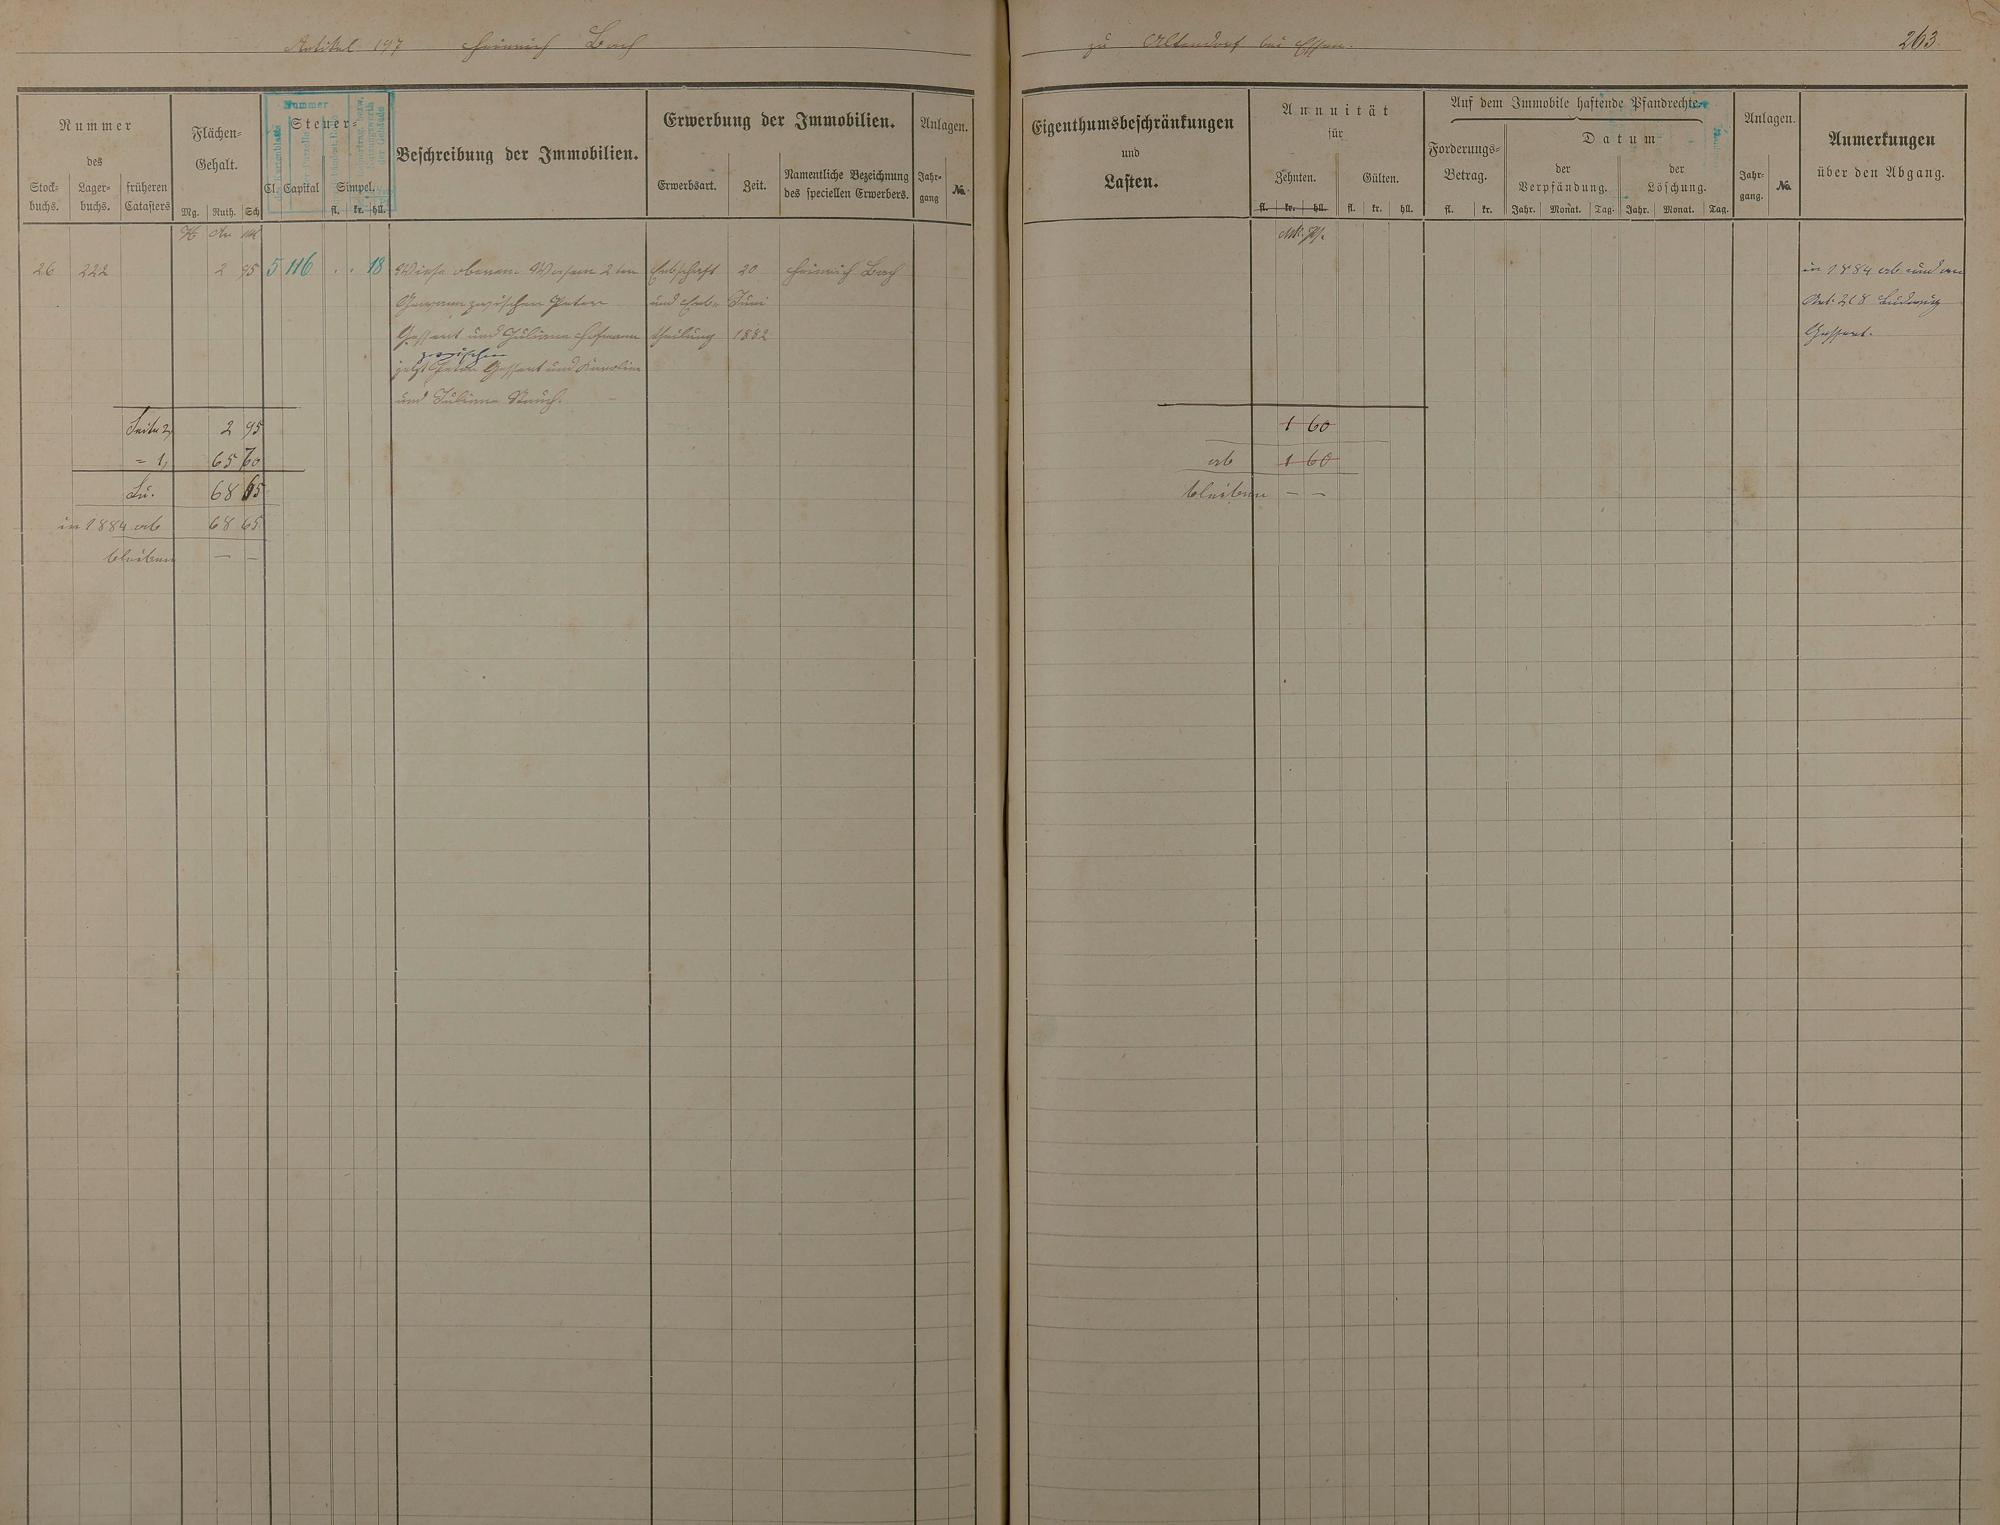 Artikel 197 Heinrich Bach
zu Altendorf bei Essen.
263.
Nummer
des
Stock-
buchs.
Lager-
buchs.
früheren
Catasters
Flächen-
Gehalt.
Mg. Ruth. Sch
Nummer
Steuer-
Cl. Capital
Simpel.
fl. kr. hll.
Beschreibung der Immobilien.
Erwerbung der Immobilien.
Erwerbsart.
Zeit.
Namentliche Bezeichnung
des speciellen Erwerbers.
Anlagen.
Jahr-
gang
No.
Eigenthumsbeschränkungen
und
Lasten.
Annuität
für
Zehnten.
Gülten.
fl. kr. hll. fl. kr. hll.
Auf dem Immobile haftende Pfandrechte.
Forderungs-
Betrag.
fl. kr.
Datum
der
Verpfändung.
der
Löschung.
Jahr. Monat. Tag. Jahr. Monat. Tag.
Anlagen.
Jahr-
gang.
No.
Anmerkungen
über den Abgang.
H Ar M
26 222 2 95 5 116 . . 18 Wiese oberen Wasem 2 ten
Gewann zwischen Peter
Gessert und Juliane Hofmann
zwischen
jetzt Peter Gessert und Karoline
und Juliane Rauch.
Erbschaft
und Erb-
theilung
20
Juni
1882
Heinrich Bach
Mk. Pf.
in 1884 ab und an
Art. 218 Ludwig
Gessert.
Seite 2, 2 95
= 1, 65 70
Su. 68 65
in 1884 ab 68 65
bleiben — —
1 60
ab 1 60
bleiben — —